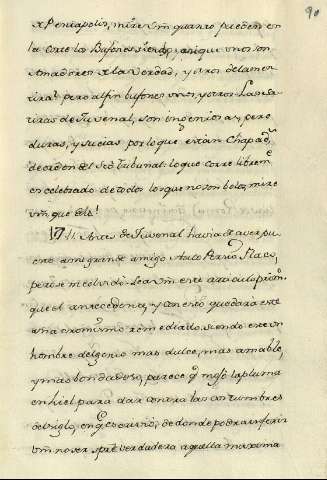 90
x Pentapolis, mire Vm quanto pueden en
la corte los Bufones siendo, aunque unos son
Amadores de la Verdad, y otros de la men
tira; pero al fin bufones unos, y otros. Las sa
tiras de Juvenal, son ingeniosas, pero
duras, y sucias por lo que estan Chapad.s
de orden del Sto Tribunal: lo que corre librem.te
es celebrado de todos los que no son bobos, mire
Vm que tal!
17 Antes de Juvenal havia de aver pu
esto a mi grande amigo Aulo Persio Flaco,
pero se me olvido: Lea Vm este articulo prim.o
que el antecedente, y con esto quedara este
anacronismo remediado, siendo este un
hombre del genio mas dulce, mas amable,
y mas bondadoso, parece q.e mojo la pluma
en hiel para dar contra las costumbres
del siglo, en q.e escrivio, de donde podra inferir
Vm no ser spre verdadera aquella maxima